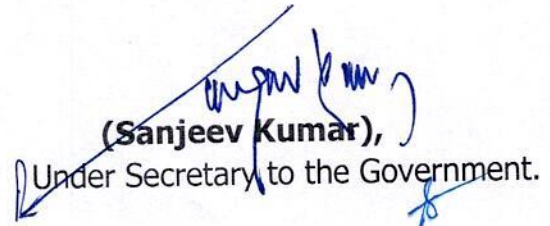 (Sanjeev Kumar),
Under Secretary to the Government.